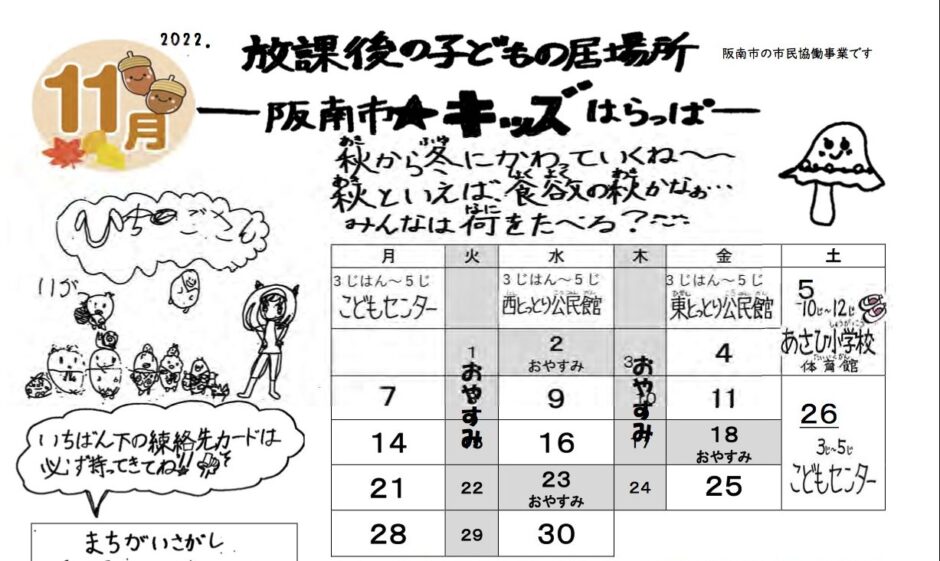 2022.
11月
放課後の子どもの居場所
阪南市の市民協働事業です
阪南市★キッズはらっぱ
あき ふゆ
秋から冬にかわっていくね〜〜
あき しょく よく あき
秋といえば、食欲の秋かなぁ…
なに
みんなは何をたべる?
いちごさん
リが
月 火 水 木 金 土
3じはん〜5じ 3じはん〜5じ 3じはん〜5じ
こどもセンター 西とっとり公民館 東とっとり公民館
5
10じ〜12じ
あさひ小学校
たいいくかん
体育館
1 2 おやすみ 3 4
おやすみ おやすみ
7 9 10 11
14 15 16 17 18 おやすみ
21 22 23 おやすみ 24 25
28 29 30
26
3じ〜5じ
こどもセンター
いちばん下の練絡先カードは
必ず持ってきてね!!
まちがいさがし